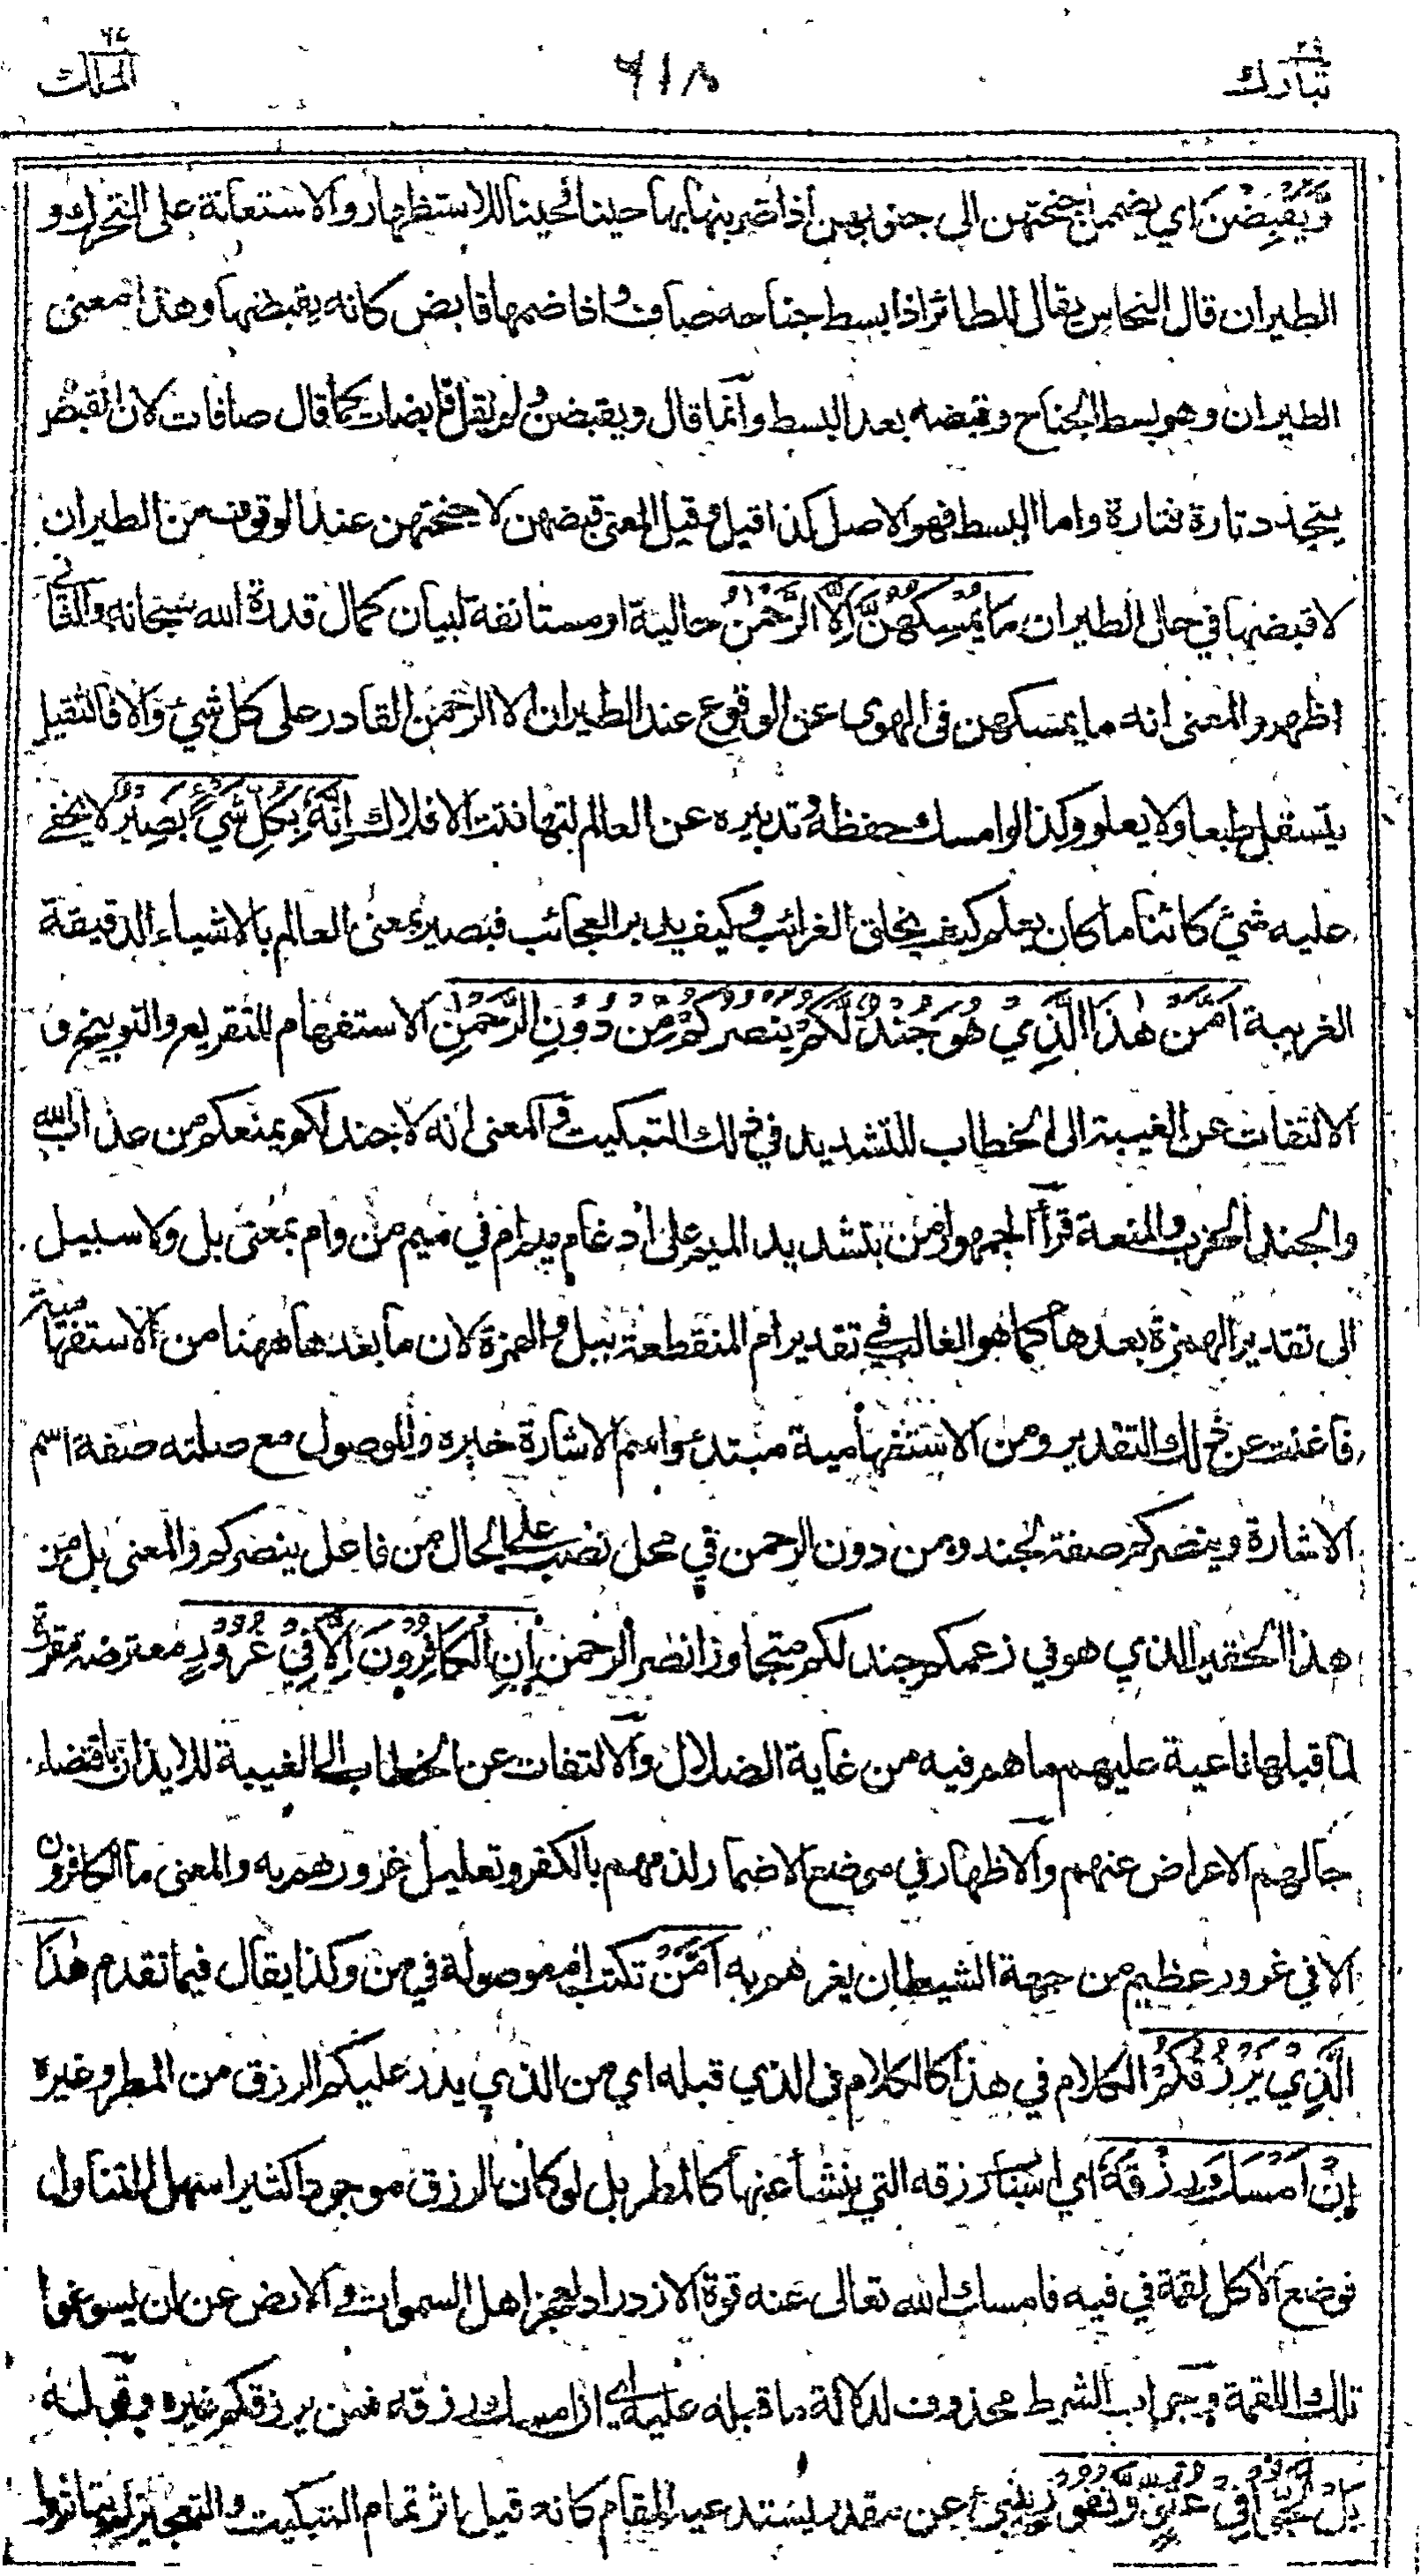 تبارك ٢٩
٦١٨
الملك ٦٧
وَّيَقْبِضْنَ اي يضممن اجنحتهن الى جنوبهن اذا ضربنها بها حينا فحينا للاستظهار والاستعانة على التحرك و
الطيران قال النحاس يقال للطائر اذا بسط جناحه صاف واذا ضمها قابض كانه يقبضها وهذا معنى
الطيران وهو بسط الجناح وقبضه بعد البسط وانما قال ويقبضن ولم يقل قابضات كما قال صافات لان القبض
يتجدد تارة فتارة واما البسط فهو الاصل كذا قيل وقيل المعنى قبضهن لاجنحتهن عند الوقوف من الطيران
لا قبضها في حال الطيران مَا يُمْسِكُهُنَّ اِلَّا الرَّحْمٰنُ حالية او مستانفة لبيان كمال قدرة الله سبحانه والثاني
اظهر والمعنى انه ما يمسكهن في الهوى عن الوقوع عند الطيران الا الرحمن القادر على كل شيء والا فالثقيل
يتسفل طبعا ولا يعلو وكذا لو امسك حفظه وتدبيره عن العالم لتهافتت الافلاك اِنَّهٗ بِكُلِّ شَيْءٍۢ بَصِيْرٌ لا يخفى
عليه شيء كائنا ما كان يعلم كيف يخلق الغرائب وكيف يدبر العجائب فبصير بمعنى العالم بالاشياء الدقيقة
الغريبة اَمَّنْ هٰذَا الَّذِيْ هُوَ جُنْدٌ لَّكُمْ يَنْصُرُكُمْ مِّنْ دُوْنِ الرَّحْمٰنِ الاستفهام للتقريع والتوبيخ و
الالتفات عن الغيبة الى الخطاب للتشديد في ذلك التبكيت والمعنى انه لا جند لكم يمنعكم من عذاب الله
والجند الحزب والمنعة قرأ الجمهور امن بتشديد الميم على ادغام ميم ام في ميم من وام بمعنى بل ولا سبيل
الى تقدير الهمزة بعدها كما هو الغالب في تقدير ام المنقطعة ببل والهمزة لان ما بعدها ههنا من الاستفهامية
فاغنت عن ذلك التقدير ومن الاستفهامية مبتدء واسم الاشارة خبره والموصول مع صلته صفة اسم
الاشارة وينصركم صفة لجند ومن دون الرحمن في محل نصب على الحال من فاعل ينصركم والمعنى بل من
هذا الحقير الذي هو في زعمكم جند لكم متجاوزا نصر الرحمن اِنِ الْكَافِرُوْنَ اِلَّا فِيْ غُرُوْرٍ معترضة مقررة
لما قبلها ناعية عليهم ما هم فيه من غاية الضلال والالتفات عن الخطاب الى الغيبة للايذان باقتضاء
حالهم الاعراض عنهم والاظهار في موضع الاضمار لذمهم بالكفر وتعليل غرورهم به والمعنى ما الكافرون
الا في غرور عظيم من جهة الشيطان يغرهم به اَمَّنْ تكتب ام موصولة في من وكذا يقال فيما تقدم هٰذَا
الَّذِيْ يَرْزُقُكُمْ الكلام في هذا كالكلام في الذي قبله اي من الذي يدر عليكم الرزق من المطر وغيره
اِنْ اَمْسَكَ رِزْقَهٗ اي اسباب رزقه التي ينشأ عنها كالمطر بل لو كان الرزق موجودا كثيرا سهل التناول
فوضع الاكل لقمة في فيه فامسك الله تعالى عنه قوة الازدراد لعجز اهل السموات والارض عن ان يسوغوا
تلك اللقمة وجواب الشرط محذوف لدلالة ما قبله عليه اي ان امسك رزقه فمن يرزقكم غيره وقوله
بَلْ لَّجُّوْا فِيْ عُتُوٍّ وَّنُفُوْرٍ ينبئ عن مقدر يستدعيه المقام كانه قيل اثر تمام التبكيت والتعجيز لم يتاثروا